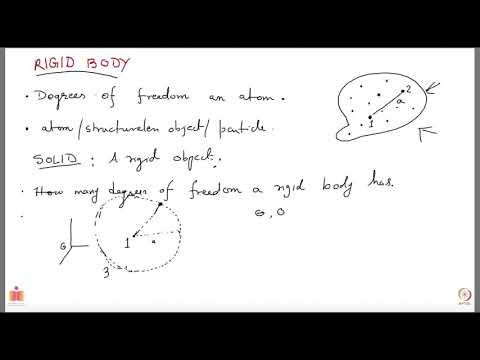 RIGID BODY
. Degrees of freedom an atom.
. atom / structureless object / particle.
SOLID : A rigid object.
. How many degrees of freedom a rigid body has.
2
a
1
1
a
3
6